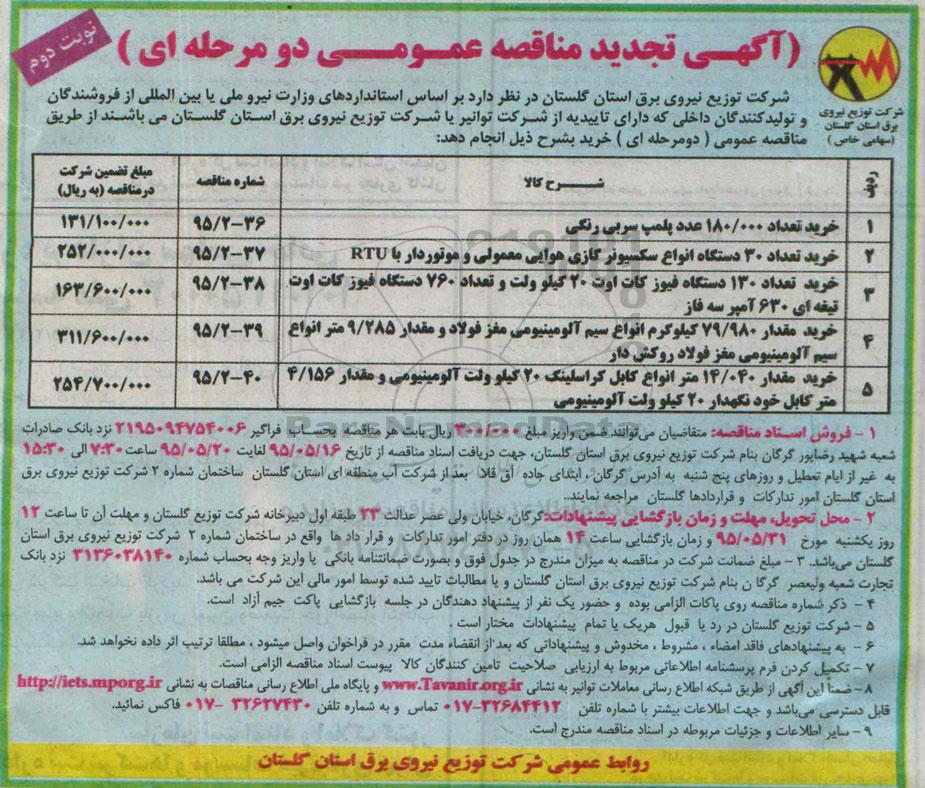 نوبت دوم
(آگهی تجدید مناقصه عمومی دو مرحله ای)
شرکت توزیع نیروی
برق استان گلستان
(سهامی خاص)
شرکت توزیع نیروی برق استان گلستان در نظر دارد بر اساس استانداردهای وزارت نیرو ملی یا بین المللی از فروشندگان
و تولیدکنندگان داخلی که دارای تاییدیه از شرکت توانیر یا شرکت توزیع نیروی برق استان گلستان می باشند از طریق
مناقصه عمومی (دومرحله ای) خرید بشرح ذیل انجام دهد:
ردیف شرح کالا شماره مناقصه مبلغ تضمین شرکت درمناقصه (به ریال)
۱ خرید تعداد ۱۸۰/۰۰۰ عدد پلمپ سربی رنگی ۹۵/۲-۳۶ ۱۳۱/۱۰۰/۰۰۰
۲ خرید تعداد ۳۰ دستگاه انواع سکسیونر گازی هوایی معمولی و موتوردار با RTU ۹۵/۲-۳۷ ۲۵۲/۰۰۰/۰۰۰
۳ خرید تعداد ۱۳۰ دستگاه فیوز کات اوت ۲۰ کیلو ولت و تعداد ۷۶۰ دستگاه فیوز کات اوت
تیغه ای ۶۳۰ آمپر سه فاز ۹۵/۲-۳۸ ۱۶۳/۶۰۰/۰۰۰
۴ خرید مقدار ۷۹/۹۸۰ کیلوگرم انواع سیم آلومینیومی مغز فولاد و مقدار ۹/۲۸۵ متر انواع
سیم آلومینیومی مغز فولاد روکش دار ۹۵/۲-۳۹ ۳۱۱/۶۰۰/۰۰۰
۵ خرید مقدار ۱۴/۰۴۰ متر انواع کابل کراسلینگ ۲۰ کیلو ولت آلومینیومی و مقدار ۴/۱۵۶
متر کابل خود نگهدار ۲۰ کیلو ولت آلومینیومی ۹۵/۲-۴۰ ۲۵۴/۷۰۰/۰۰۰
۱ - فروش اسناد مناقصه: متقاضیان می‌توانند ضمن واریز مبلغ ۳۰۰/۰۰۰ ریال بابت هر مناقصه بحساب فراگیر ۲۱۹۵۰۹۴۷۵۴۰۰۶ نزد بانک صادرات
شعبه شهید رضاپور گرگان بنام شرکت توزیع نیروی برق استان گلستان، جهت دریافت اسناد مناقصه از تاریخ ۹۵/۰۵/۱۶ لغایت ۹۵/۰۵/۲۰ ساعت ۷:۳۰ الی ۱۵:۳۰
به غیر از ایام تعطیل و روزهای پنج شنبه به آدرس گرگان، ابتدای جاده آق قلا بعد از شرکت آب منطقه ای استان گلستان ساختمان شماره ۲ شرکت توزیع نیروی برق
استان گلستان امور تدارکات و قراردادها گلستان مراجعه نمایند..
۲ - محل تحویل، مهلت و زمان بازگشایی پیشنهادات: گرگان، خیابان ولی عصر عدالت ۲۳ طبقه اول دبیرخانه شرکت توزیع گلستان و مهلت آن تا ساعت ۱۲
روز یکشنبه مورخ ۹۵/۰۵/۳۱ و زمان بازگشایی ساعت ۱۴ همان روز در دفتر امور تدارکات و قرار داد ها واقع در ساختمان شماره ۲ شرکت توزیع نیروی برق استان
گلستان می‌باشد. ۳ - مبلغ ضمانت شرکت در مناقصه به میزان مندرج در جدول فوق و بصورت ضمانتنامه بانکی یا واریز وجه بحساب شماره ۳۱۳۶۰۳۸۱۴۰ نزد بانک
تجارت شعبه ولیعصر گرگان بنام شرکت توزیع نیروی برق استان گلستان و یا مطالبات تایید شده توسط امور مالی این شرکت می باشد.
۴ - ذکر شماره مناقصه روی پاکات الزامی بوده و حضور یک نفر از پیشنهاد دهندگان در جلسه بازگشایی پاکت جیم آزاد است.
۵ - شرکت توزیع گلستان در رد یا قبول هریک یا تمام پیشنهادات مختار است.
۶ - به پیشنهادهای فاقد امضاء، مشروط، مخدوش و پیشنهاداتی که بعد از انقضاء مدت مقرر در فراخوان واصل میشود، مطلقا ترتیب اثر داده نخواهد شد.
۷ - تکمیل کردن فرم پرسشنامه اطلاعاتی مربوط به ارزیابی صلاحیت تامین کنندگان کالا پیوست اسناد مناقصه الزامی است.
۸ - ضمناً این آگهی از طریق شبکه اطلاع رسانی معاملات توانیر به نشانی www.Tavanir.org.ir و پایگاه ملی اطلاع رسانی مناقصات به نشانی http://iets.mporg.ir
قابل دسترسی می‌باشد و جهت اطلاعات بیشتر با شماره تلفن ۰۱۷-۳۲۶۸۴۴۱۲ تماس و به شماره تلفن ۳۲۶۲۷۴۳۰ -۰۱۷ فاکس نمائید.
۹ - سایر اطلاعات و جزئیات مربوطه در اسناد مناقصه مندرج است.
روابط عمومی شرکت توزیع نیروی برق استان گلستان